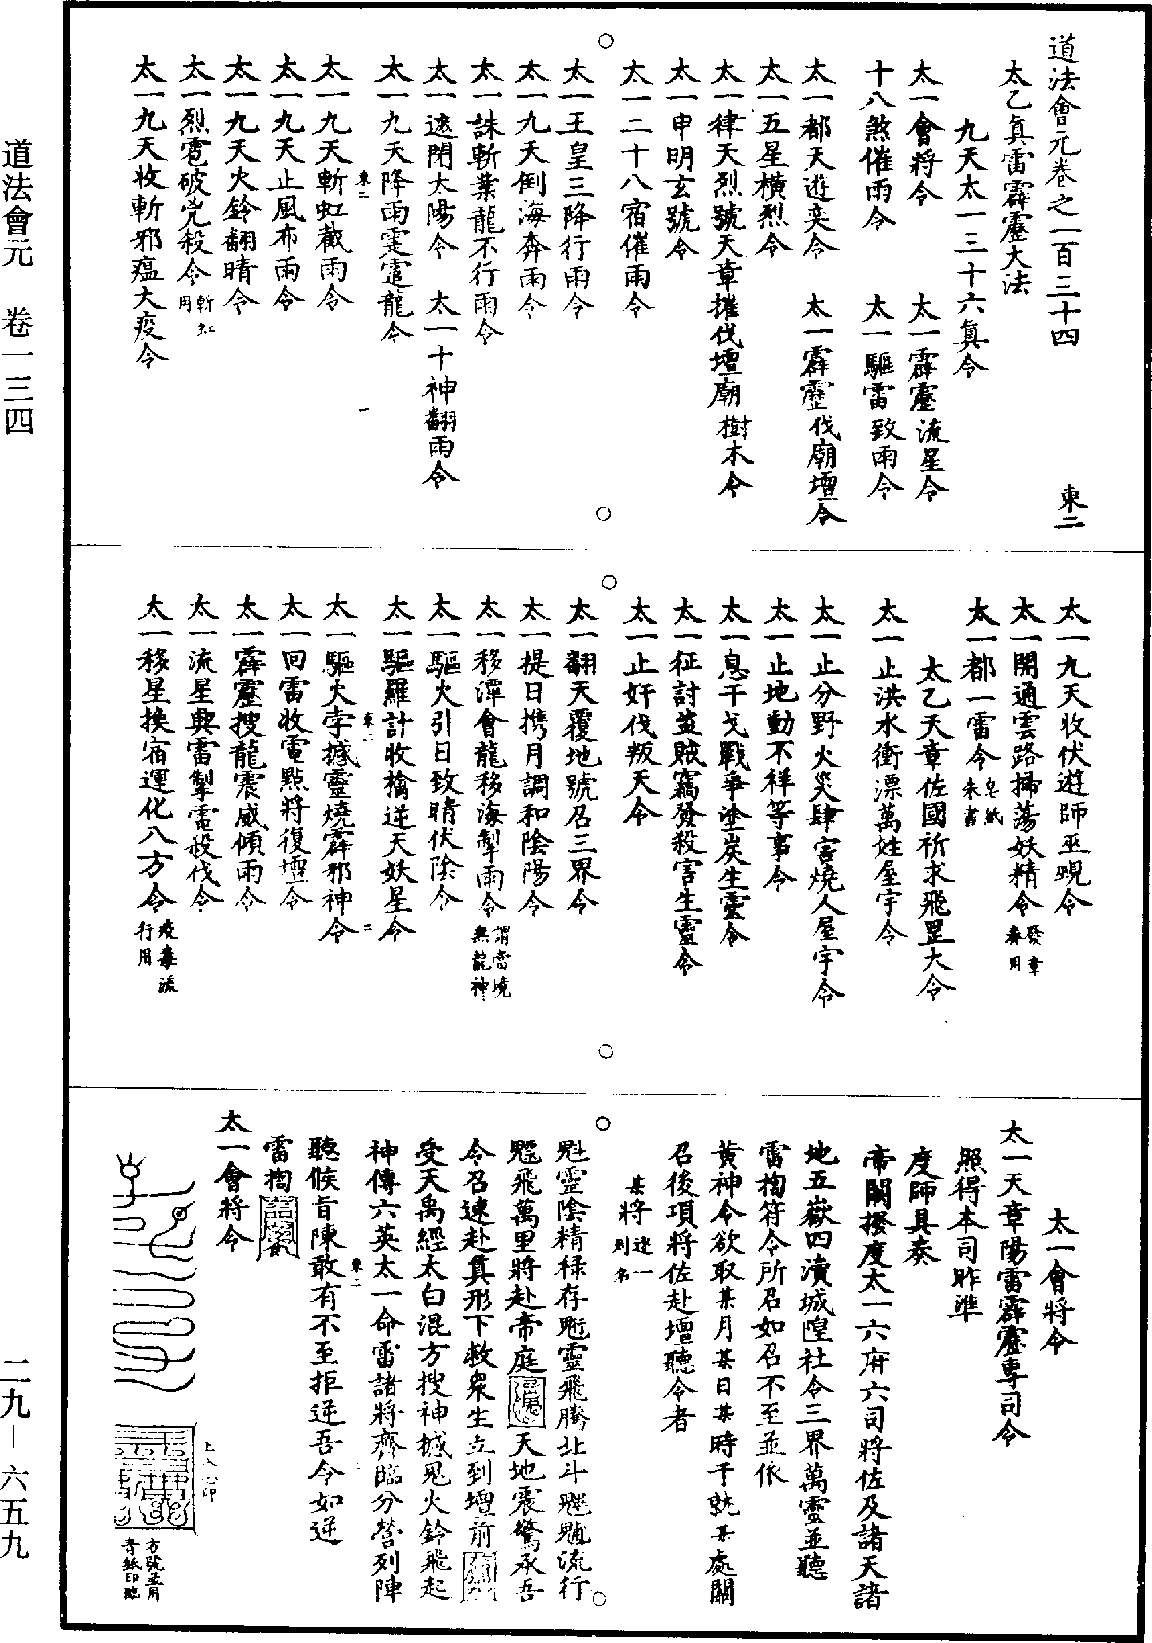 道法會元卷之一百三十四 東二
太乙真雷霹靂大法
九天太一三十六真令
太一會將令 太一霹靂流星令
十八煞催雨令 太一驅雷致雨令
太一都天遊奕令 太一霹靂伐廟壇令
太一五星橫烈令
太一律天烈號天章摧伐壇廟樹木令
太一申明玄號令
太一二十八宿催雨令
太一玉皇三降行雨令
太一九天倒海奔雨令
太一誅斬業龍不行雨令
太一遮閉太陽令 太一十神翻雨令
太一九天降雨霆電龍令
東二 一
太一九天斬虹截雨令
太一九天止風布雨令
太一九天火鈴翻晴令
太一烈雹破党殺令斬虹用
太一九天收斬邪瘟大疫令
太一九天收伏遊師巫覡令
太一開通雲路掃蕩妖精令發章奏用
太一都一雷令皂紙朱書
太乙天章佐國祈求飛罡大令
太一止洪水衝漂萬姓屋宇令
太一止分野火災肆害燒人屋宇令
太一止地動不祥等事令
太一息干戈戰爭塗炭生靈令
太一征討盜賊竊發殺害生靈令
太一止奸伐叛天令
太一翻天覆地號召三界令
太一提日携月調和陰陽令
太一移潭會龍移海掣雨令謂當境無龍神
太一驅火引日致晴伏陰令
太一驅羅計收擒逆天妖星令
東二 二
太一驅火孛撼靈燒霹邪神令
太一回雷收電點將復壇令
太一霹靂搜龍震威傾雨令
太一流星興雷掣電殺伐令
太一移星換宿運化八方令疫毒流行用
太一會將令
太一天章陽雷霹靂專司令
照得本司昨準
度師具奏
帝闕撥度太一六府六司將佐及諸天諸
地五嶽四瀆城隍社令三界萬靈並聽
雷掏符令所召如召不至並依
黃神令欲取某月某日某時于就某處關
召後項將佐赴壇聽令者
某將逐一列名
魁靈陰精祿存魁靈飛騰北斗流行
飛萬里將赴帝庭天地震驚承吾
令召速赴真形下救衆生立到壇前
受天禹經太白混方搜神撼鬼火鈴飛起
神傳六英太一命雷諸將齊臨分營列陣
東二
聽候旨陳敢有不至拒逆吾令如逆
雷掏
太一會將令
道法會元 卷一三四
二九—六五九